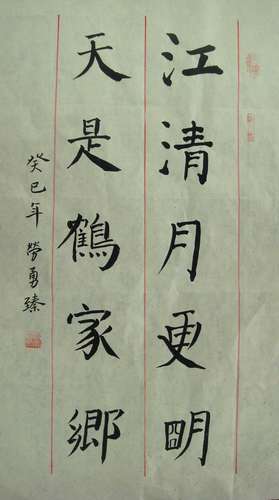 江清月更明
天是鶴家鄉
癸巳年 勞勇臻